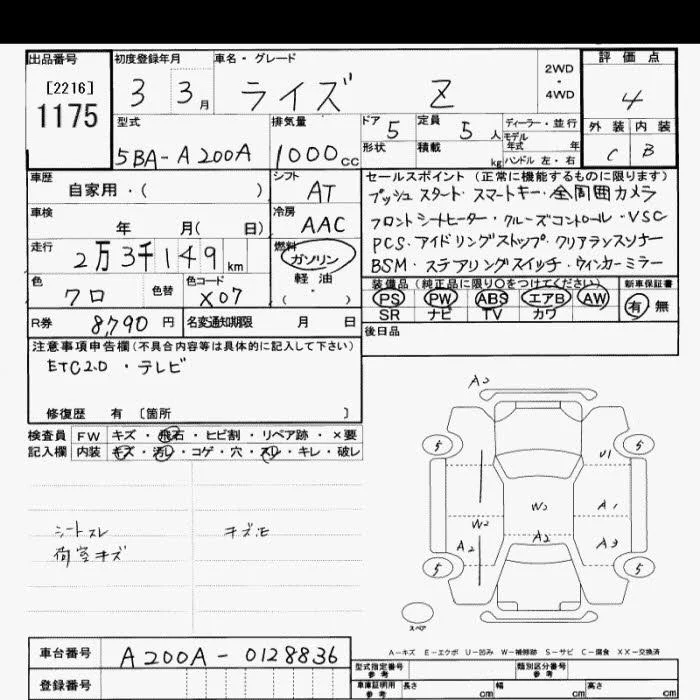 出品番号
[2216]
1175
初度登録年月
3 3月
車名・グレード
ライズ Z
2WD
・
4WD
評価点
4
外装 内装
C B
型式
5BA-A200A
排気量
1000cc
ドア 5
定員 5人
ディーラー・並行
モデル年式 年
形状
積載 kg
ハンドル 左・右
車歴
自家用・( )
シフト
AT
車検
年 月( 日)
冷房
AAC
走行
2万3千149km
燃料
ガソリン
軽油
( ・ )
色
クロ
色替
色コード
X07
R券 8,790円
名変通知期限 月 日
セールスポイント (正常に機能するものに限ります)
プッシュスタート・スマートキー・全周囲カメラ
フロントシートヒーター・クルーズコントロール・VSC
PCS・アイドリングストップ・クリアランスソナー
BSM・ステアリングスイッチ・ウィンカーミラー
装備品 (純正品に限り○をつけてください)
PS PW ABS エアB AW
SR ナビ TV カワ
新車保証書
有 無
後日品
注意事項申告欄(不具合内容等は具体的に記入して下さい)
ETC2.0 ・テレビ
修復歴 有 〔箇所 〕
検査員記入欄
FW キズ・飛石・ヒビ割・リペア跡・×要
内装 キズ・汚レ・コゲ・穴・スレ・キレ・破レ
シートスレ
荷室キズ
キズ・モ
5 5
U1
W2
A1
W2
A2
A2
A3
5 5
スペア
A-キズ E-エクボ U-凹み W-補修跡 S-サビ C-腐食 XX-交換済
車台番号 A200A-0128836
登録番号
型式指定番号 参考
類別区分番号 参考
車庫証明用 参考
長さ cm 幅 cm 高さ cm